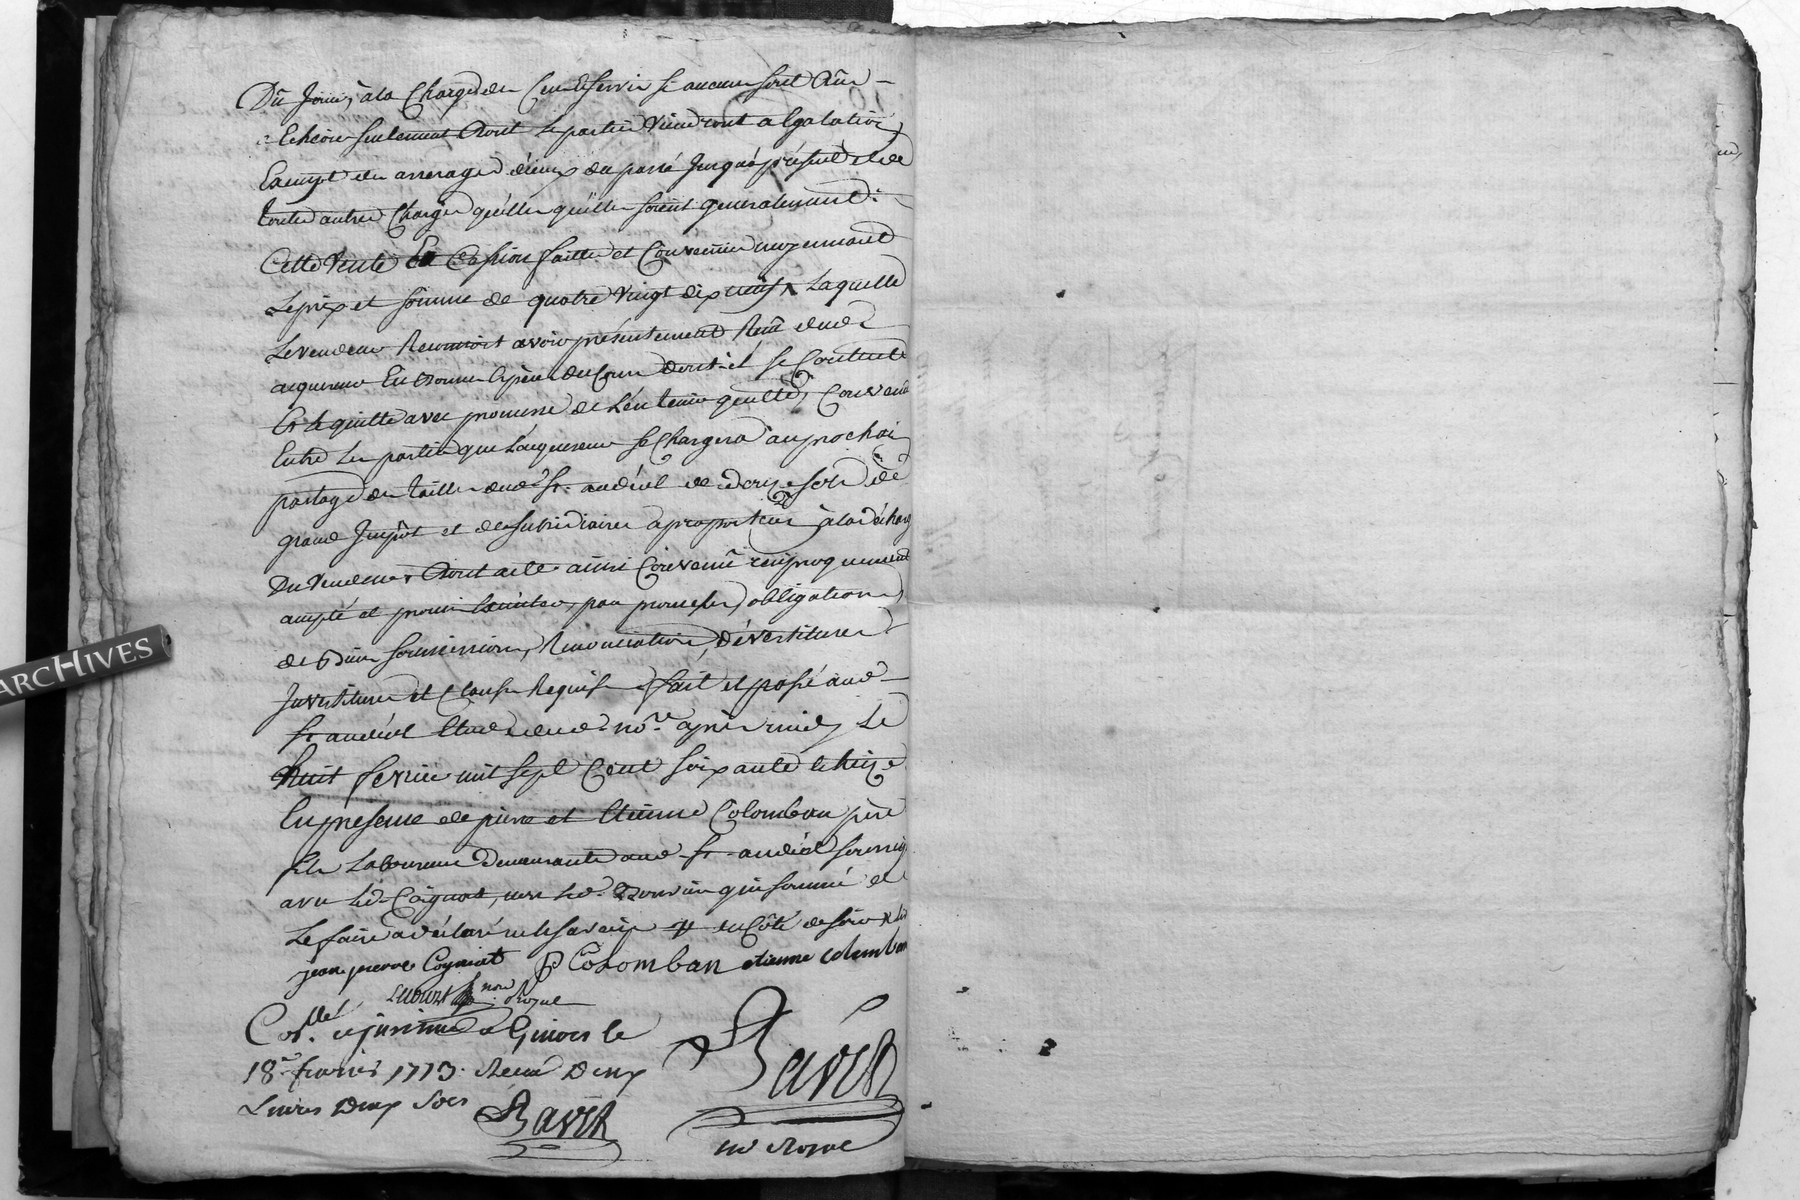 Du jour, a la Charge de Cens et servis si aucuns sont dûs
a Echeoir seulement dont le partie viendront a Egalation
Exempt des arrerages d'iceux du passé jusqu'a présent et de
toute autre Charge quelle quelle soient generalement.
Cette Vente Et Cession faitte et Convenue moyennant
Le prix et somme de quatre vingt dix neuf # Laquelle
Le vendeur Reconnoit avoir présentement Reçu dud.
acquereur En bonne Espece du Cour dont il se Contente
Et le quitte avec promesse de l'en tenir quitte, Convenu
Entre les parties que l'acquereur se Chargera au prochain
partage des tailles dud. St. andéol de seize sols de
grand Impôt et de subsidiaire a proportion a la décharge
Du Vendeur, dont acte ainsi Convenu reciproquement
accepté et promis Executer, par promesses, obligations
de Biens soumission, Renonciation, dévestitures
Investiture et Clause Requise, fait et passé aud.
St. andéol Etude dud. nore. après midy Le
Huit fevrier mil sept Cent soixante treize
En presence de pierre et Etienne Colomban pere
fils Laboureurs demeurants aud. St. andéol soussignés
avec led. Cogniat, non led. qui sommé de
Le faire a déclaré ne le savoir
jean pierre Cogniat P Colomban etienne colomban
nore. Royal
Collé. a Givors le
18e. fevrier 1773. Reçu Deux
Livres Deux Sols
nre Royal